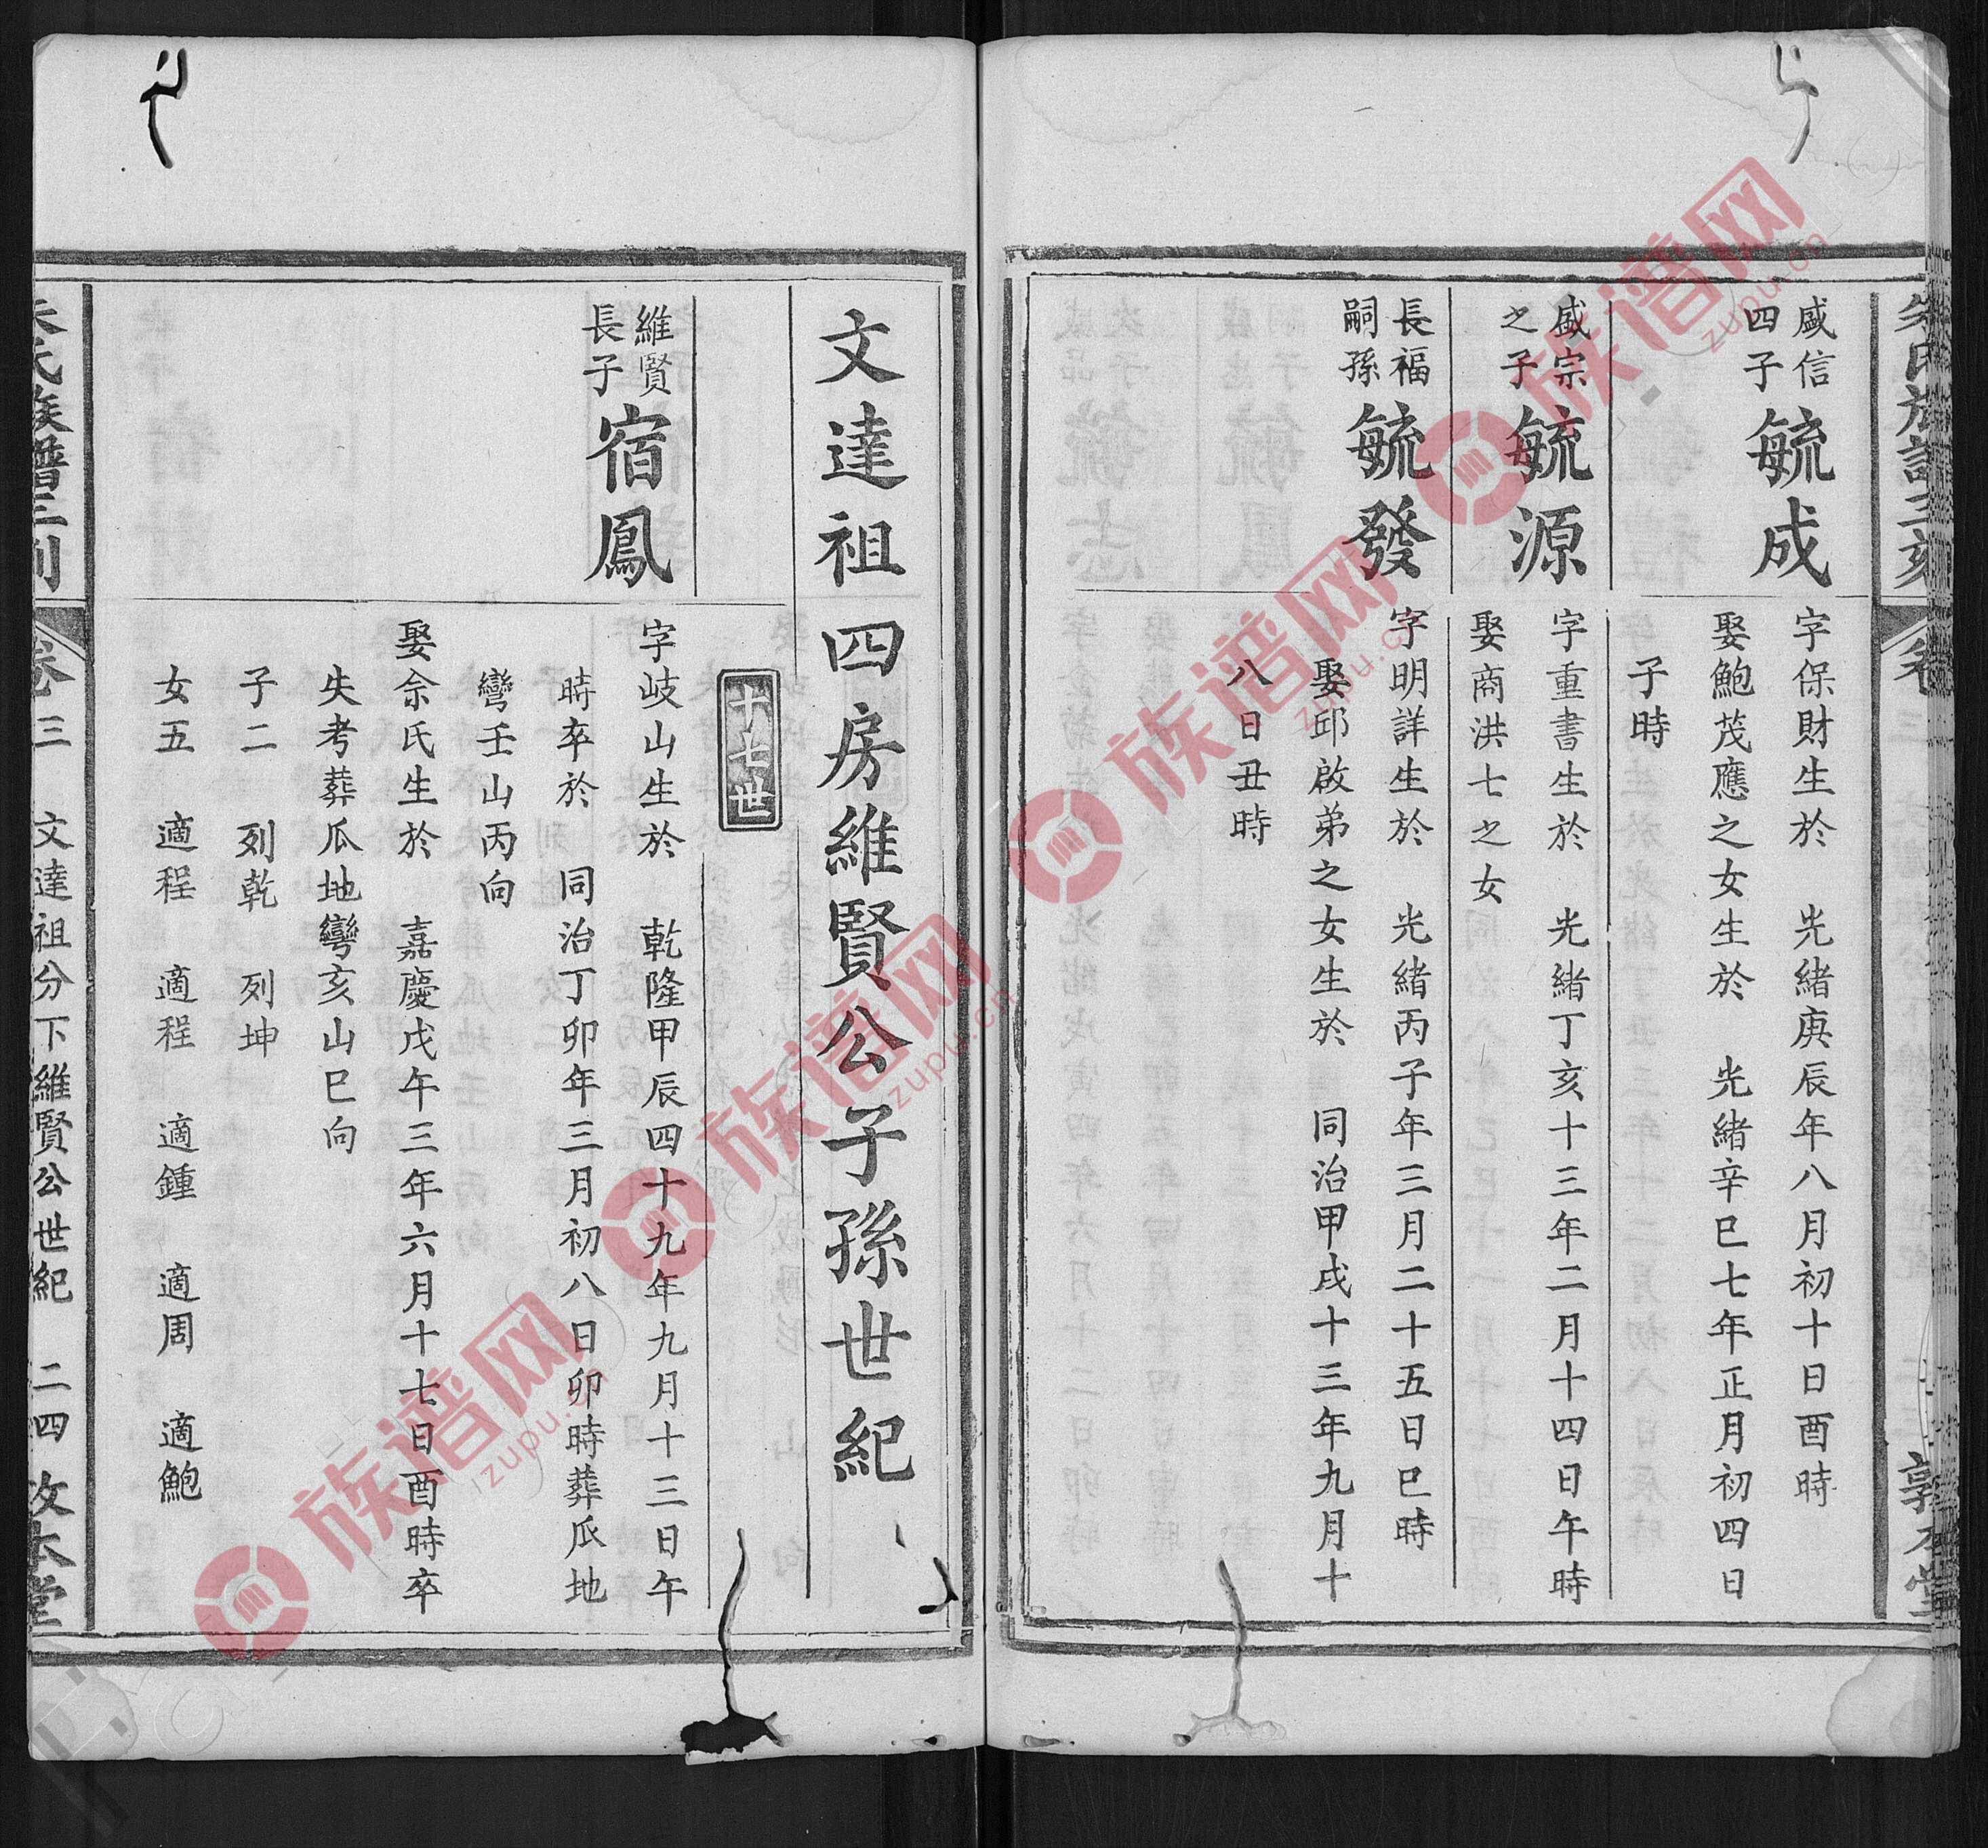 盛信
四子
毓成
字保財生於　光緒庚辰年八月初十日酉時
娶鮑茂應之女生於　光緒辛巳七年正月初四日
子時
盛宗
之子
毓源
字重書生於　光緒丁亥十三年二月十四日午時
娶商洪七之女
長福
嗣孫
毓發
字明詳生於　光緒丙子年三月二十五日巳時
娶邱啟弟之女生於　同治甲戌十三年九月十
八日丑時
文達祖四房維賢公子孫世紀
十七世
維賢
長子
宿鳳
字岐山生於　乾隆甲辰四十九年九月十三日午
時卒於　同治丁卯年三月初八日卯時葬瓜地
彎壬山丙向
娶余氏生於　嘉慶戊午三年六月十七日酉時卒
失考葬瓜地彎亥山巳向
子二　列乾　列坤
女五　適程　適程　適鍾　適周　適鮑
氏族譜三刊
卷三　文達祖分下維賢公世紀　二四
族谱网
zupu.cn